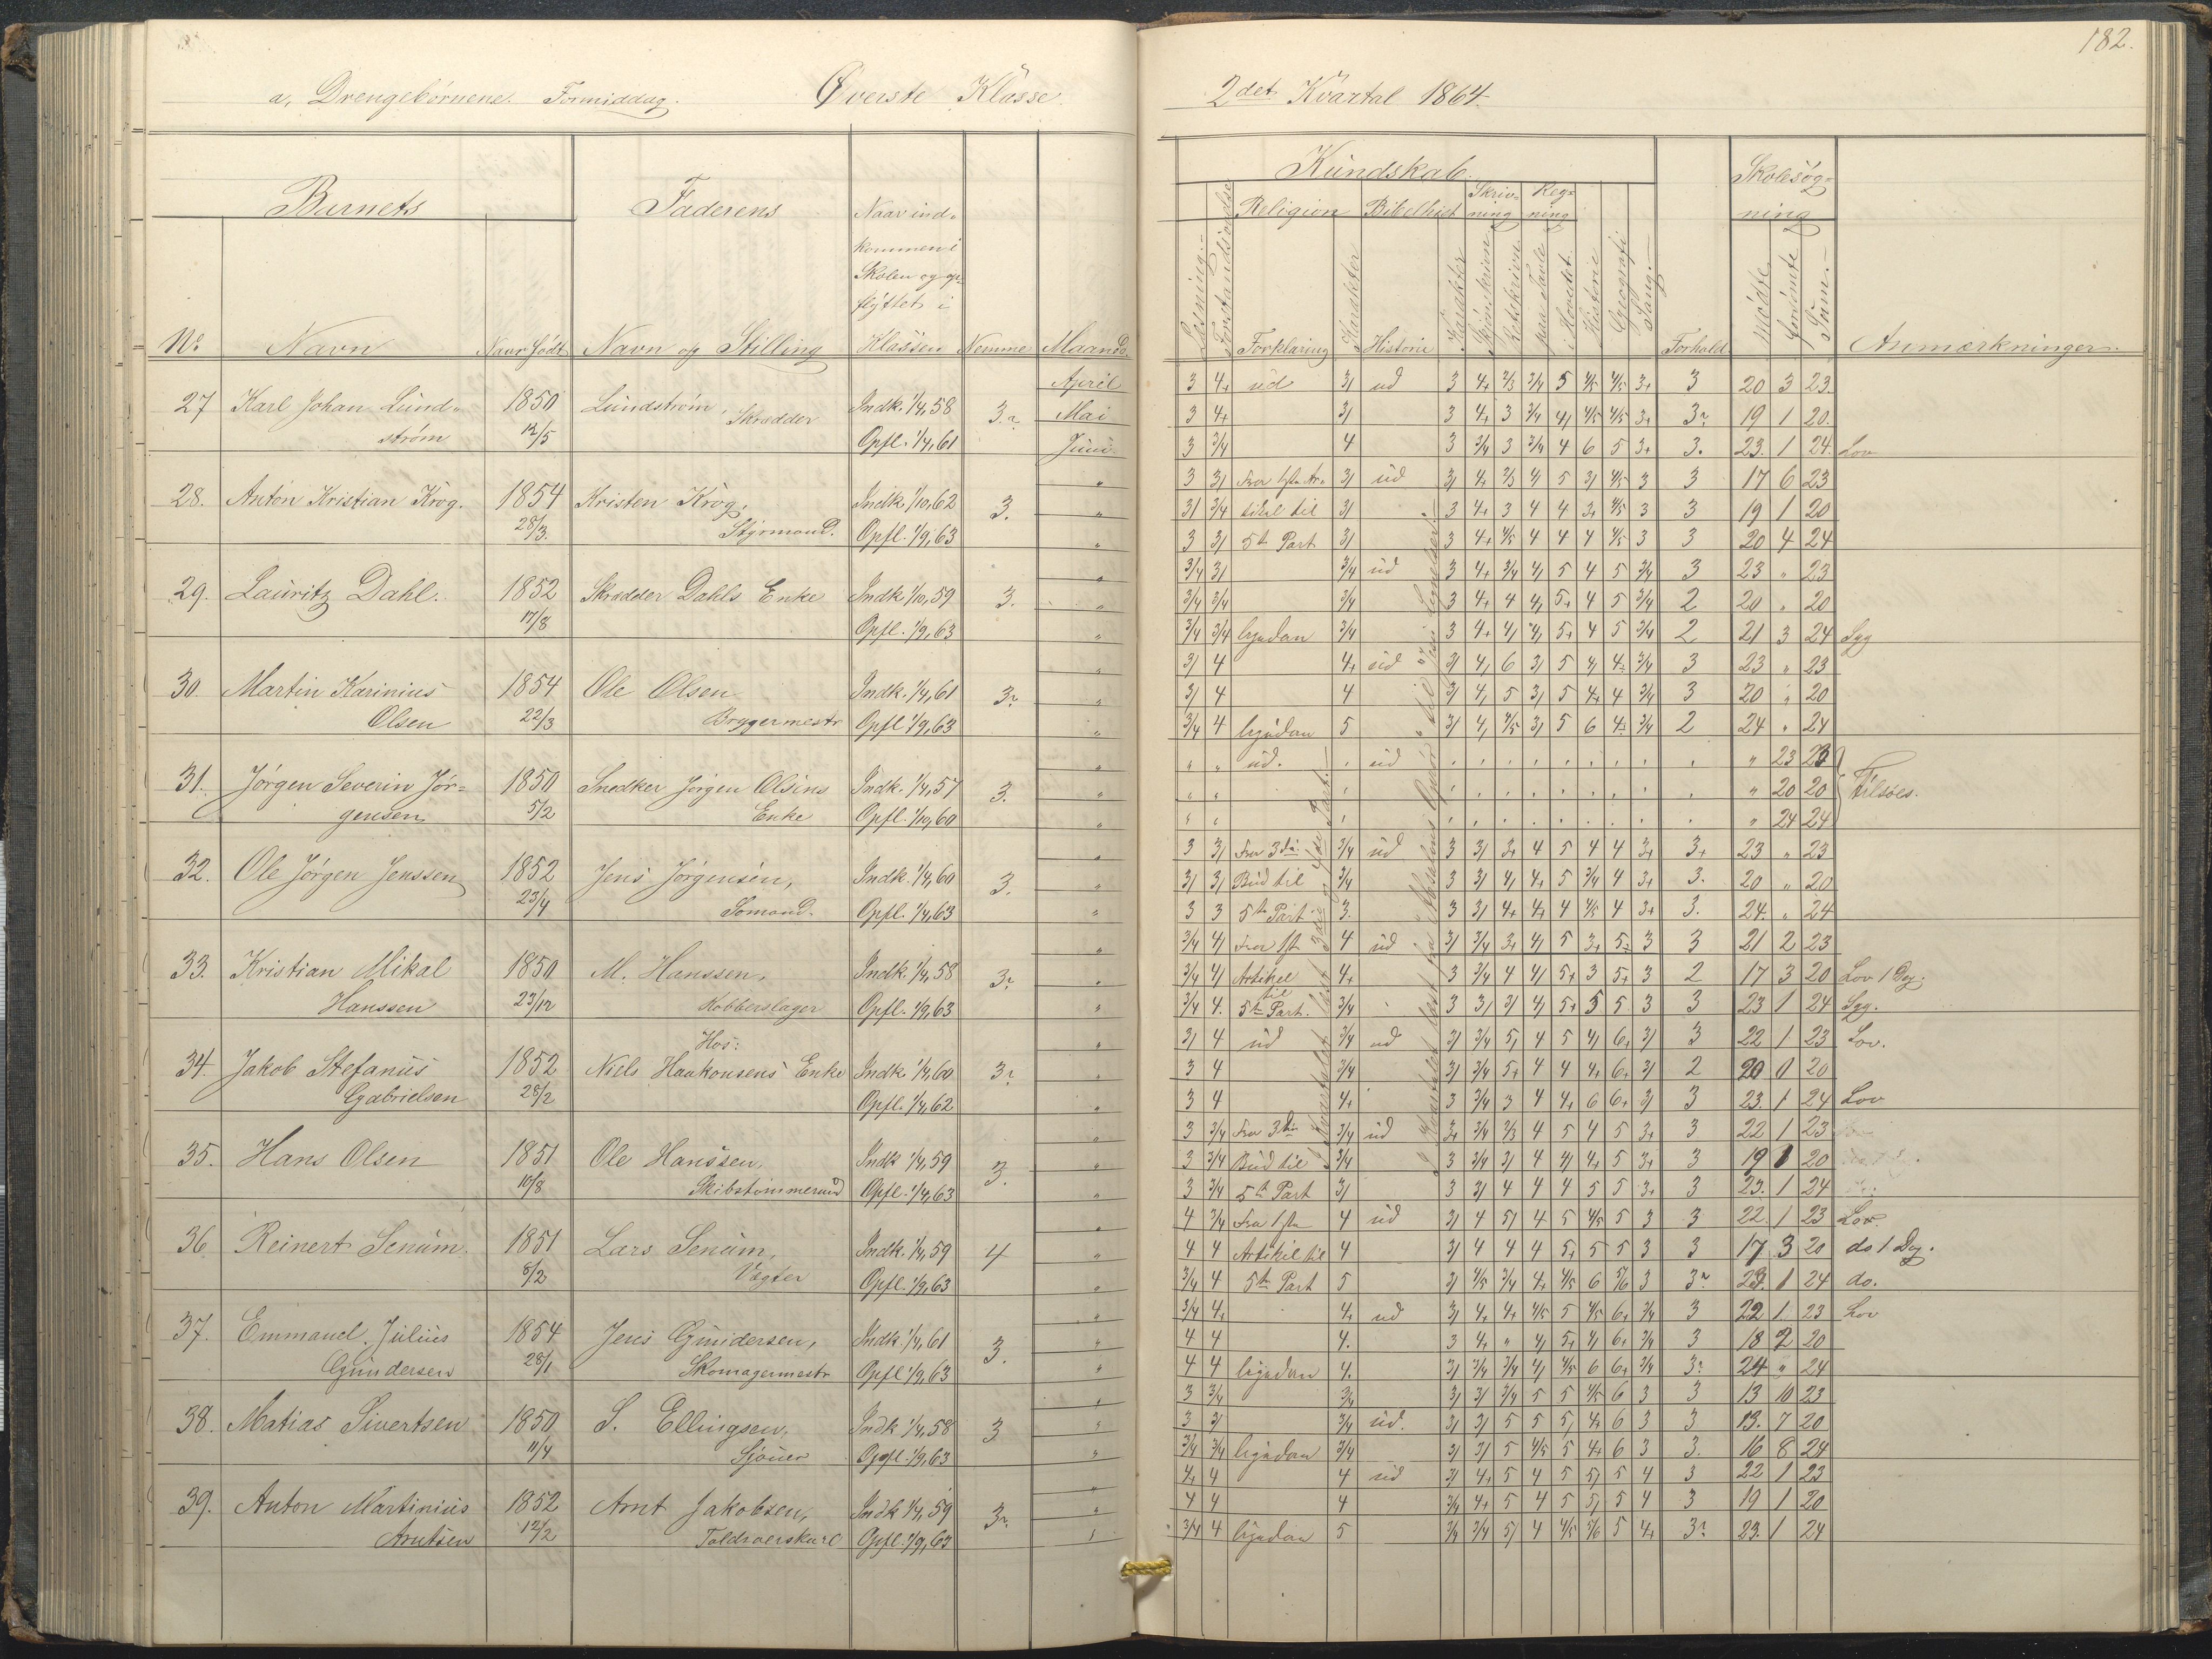 a, Drengebørnene. Formiddag. Øverste Klasse
Barnets Faderens Naar ind-
kommen i
Skolen og op-
flyttet i
No Navn Naar født Navn og Stilling Klassen Nemme Maaned
27 Karl Johan Lund- 1850 Lundstrøm, Indk. 1/4,58 3.? April
strøm 12/5 Skrædder Opfl. 1/4,61 Mai
Juni
28. Anton Kristian Krog. 1854 Kristen Krog, Indk. 1/10,62 3. "
28/3. Styrmand. Opfl. 1/9,63 "
29. Lauritz Dahl. 1852 Skrædder Dahls Enke Indk. 1/10,59 3. "
17/8 Opfl. 1/9,63 "
30. Martin Karinius 1854 Ole Olsen Indk. 1/4,61 3? "
Olsen 22/3 Bryggermestr Opfl. 1/9,63 "
31. Jørgen Severin Jør- 1850 Snedker Jørgen Olsens Indk. 1/4,57 3. "
gensen 5/2 Enke Opfl. 1/10,60 "
32. Ole Jørgen Jenssen 1852 Jens Jørgensen, Indk. 1/4,60 3. "
23/4 Sømand. Opfl. 1/4,63 "
33. Kristian Mikal 1850 M. Hanssen, Indk. 1/4,58 3? "
Hanssen 23/12 Kobberslager Opfl. 1/9,63 "
Hos:
34. Jakob Stefanus 1852 Niels Haakonsens Enke Indk. 1/4,60 3? "
Gabrielsen 28/2 Opfl. 1/4,62 "
35. Hans Olsen 1851 Ole Hanssen, Indk 1/4,59 3. "
10/8 Skibstømmermd Opfl. 1/4,63 "
36. Reinert Senum. 1851 Lars Senum, Indk. 1/4,59 4 "
8/2 Vægter Opfl. 1/9,63 "
37. Emmanuel Julius 1854 Jens Gundersen, Indk. 1/4,61 3. "
Gundersen 28/1 Skomagermestr Opfl. 1/9,63 "
38. Matias Sivertsen 1850 S. Ellingsen, Indk 1/4,58 3 "
11/4 Sjøuer Opfl. 1/9,63 "
39. Anton Martinius 1852 Arnt Jakobsen, Indk 1/4,59 3? "
Arntsen 12/2 Toldroerskarl Opfl. 1/9,63 "
182.
2det Kvartal 1864.
Kundskab. Skolesøg-
Religion Bibelhist Skriv- Reg- ning
ning ning
Læsning.
Forstandsøvelse
Forklaring Karakter Historie Karakter Skjønskrivn. Retskrivn. paa Tavle i Hovedet. Historie Geografi Sang. Forhold Mødte forsømte Sum. Anmærkninger.
3 4+ ud 3/ ud 3 4+ 2/3 3/4 5 4/5 4/5 3+ 3 20 3 23.
3 4+ 3/ 3 4+ 3 3/4 4/ 4/5 4/5 3+ 3? 19 1 20.
3 3/4 4 3 3/4 3 3/4 4 6 5 3+ 3. 23. 1 24. Lov
3 3/ Fra 1ste Ar- 3/ ud 3/ 4+ 2/3 4/ 5 3/ 4/5 3 3 17 6 23
3/ 3/4 tikel til 3/ 3 4+ 3 4 4 3+ 4/5 3 3 19 1 20
3 3/ 5te Part 3/ 3 4+ 4/5 4 4 4 4/5 3 3 20 4 24
3/4 3/ 3/4 ud 3 4+ 3/4 4/ 5 4 5 3/4 3 23 " 23
3/4 3/4 3/4 3 4+ 4 4/ 5+ 4 5 3/4 2 20 " 20
3/4 3/4 ligedan 3/4 3 4+ 4/ 4/ 5+ 4 5 3/4 2 21 3 24 Syg
3/ 4 4+ ud 3/ 4/ 6 3/ 5 4/ 4+ 3/4 3 23 " 23
3/ 4 4 3/ 4/ 5 3/ 5 4+ 4 3/4 3 20 " 20
3/4 4 ligedan 5 3/ 4/ 4/5 3/ 5 6 4+ 3/4 2 24 " 24
" " ud. " ud " 23 23
" " " 20 20 Tilsøes.
" " " 24 24
3 3/ Fra 3die 3/4 ud 3 3/ 3+ 4 5 4 4 3+ 3+ 23 " 23
3/ 3/ Bud til 3/4 3 3/ 4/ 4+ 5 3/4 4 3+ 3. 20 " 20
3 3 5te Part 3. 3 3/ 4+ 4+ 4 4/5 4 3+ 3. 24. " 24
3/4 4/ Fra 1ste 4 ud 3/ 3/4 3+ 4/ 5 3+ 5+ 3 3 21 2 23
3/4 4/ Artikel 4+ 3 3/4 4 4/ 5+ 3 5+ 3 2 17 3 20 Lov 1 Dg.
til
3/4 4. 5te Part. 3/4 3 3/ 3/ 4/ 5+ 5 5 3 3 23 1 24 Syg.
3/ 4 ud 3/4 ud 3/ 3/4 5/ 4 5 4/ 6+ 3/ 3 22 1 23 Lov.
3 4 3/4 3/ 3/4 5+ 4 4 4+ 6+ 3/ 2 20 0 20
3 4 4+ 3 3/4 3 4 4+ 6 6+ 3/ 3 23. 1 24 Lov
3 3/4 Fra 3die 3/4 ud 3+ 3/4 2/3 4 5 4 5 3+ 3 22 1 23
3 3/4 Bud til 3/4 3 3/4 3/ 4 4/ 4+ 5 3+ 3 19 1 20
3 3/4 5te Part 3/ 3 3/ 4 4 4 5 5 3+ 3 23. 1 24
4 3/4 Fra 1ste 4 ud 3/ 4 5/ 4 5 4/5 5 3 3 22 1 23 Lov.
4 4 Artikel til 4 3/ 4 4 4 5+ 5 5 3 3 17 3 20 do 1 Dg.
3/4 4 5te Part 5 3/ 4/5 3/4 4+ 4/5 6 5/6 3 3? 23. 1 24 do.
3/4 4+ 4+ ud 3/ 4+ 4+ 4/5 5 4/5 6+ 3/4 3 22. 1 23 Lov
4 4 4. 3 4+ " 4/ 5+ 4/ 6+ 3/4 3 18 2 20
4 4 ligedan 4. 3/ 3/4 3/4 4/ 4/5 6 6+ 3/4 3? 24 " 24
3 3/4 3/4 3/ 3/ 3/4 5 5 4/5 6 3 3 13 10 23
3 3/ 3/4 ud. 3/ 3/ 5 5 5/ 4+ 6 3 3 13. 7 20
3/4 3/4 ligedan 3/4 3/ 3/ 5 4/5 5 4+ 6 3 3. 16 8 24
4+ 4 4 ud 3/ 4+ 5 4 5 5/ 5 4 3 22 1 23
4 4 4 3/4 4+ 5 4 5 5/ 5 4 3 19 1 20
3/4 4 ligedan 5 3/4 3/4 5/ 4 4/5 5/6 5 4+ 3? 23. 1 24